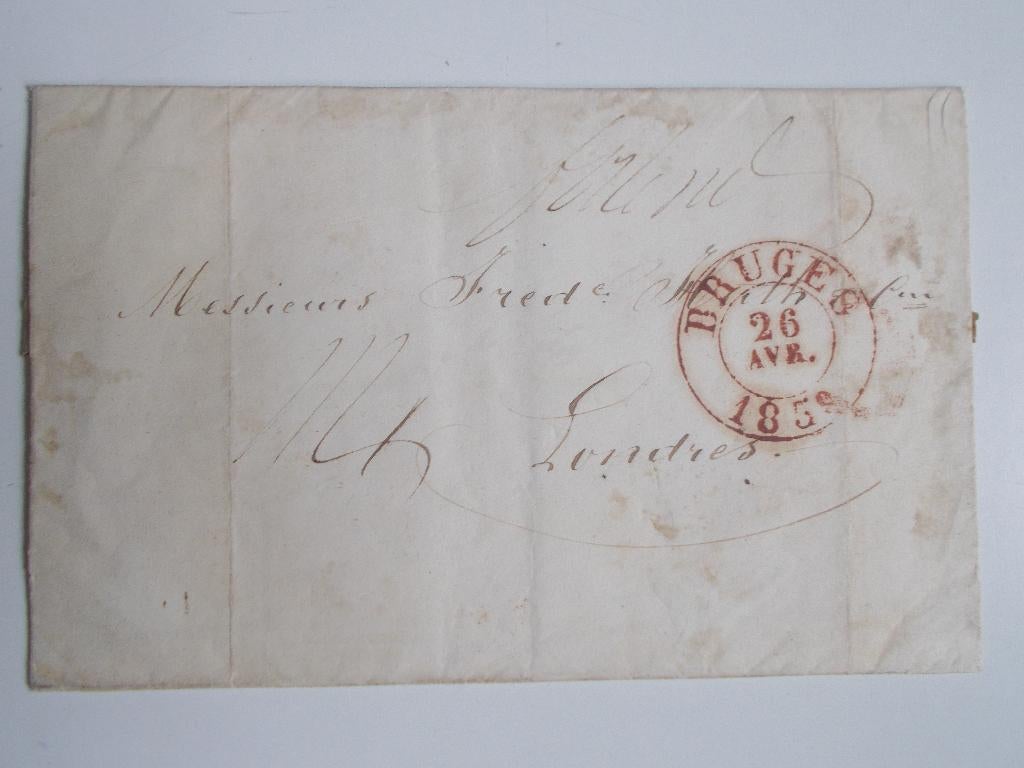 Messieurs Fredc. Huth & Cie
BRUGES
26
AVR.
185
Londres.